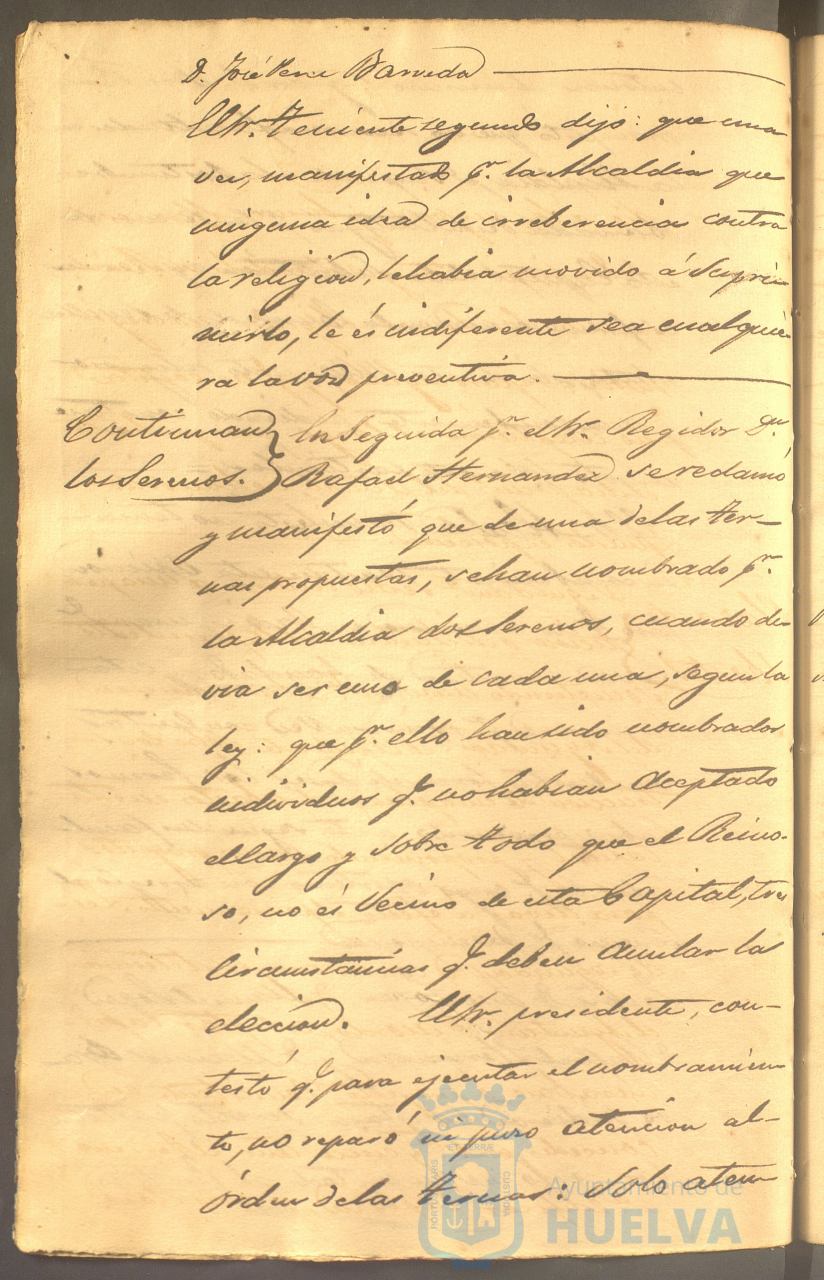 D. José Perez Barreda
El Sr. Teniente segundo dijo: que una
vez, manifestado pr. la Alcaldia que
ninguna idea de irreberencia contra
la religion, le habia movido á supri-
mirlo, le és indiferente sea cualquie-
ra la voz preventiva.
Continuan
los Serenos.
En seguida pr. el Sr. Regidor Dn.
Rafael Hernandez se reclamó
y manifestó que de una de las ter-
nas propuestas, se han nombrado pr.
la Alcaldia dos Serenos, cuando de-
via ser uno de cada una, segun la
ley: que pr. ello han sido nombrados
individuos q. no habian aceptado
el cargo y sobre todo que el Reino-
so, no és Vecino de esta Capital, tres
circunstancias q. deben anular la
eleccion. El Sr. presidente, con-
testó q. para ejecutar el nombramien
to, no reparó ni puso atencion al
órden de las ternas: Solo aten
Ayuntamiento de
HUELVA